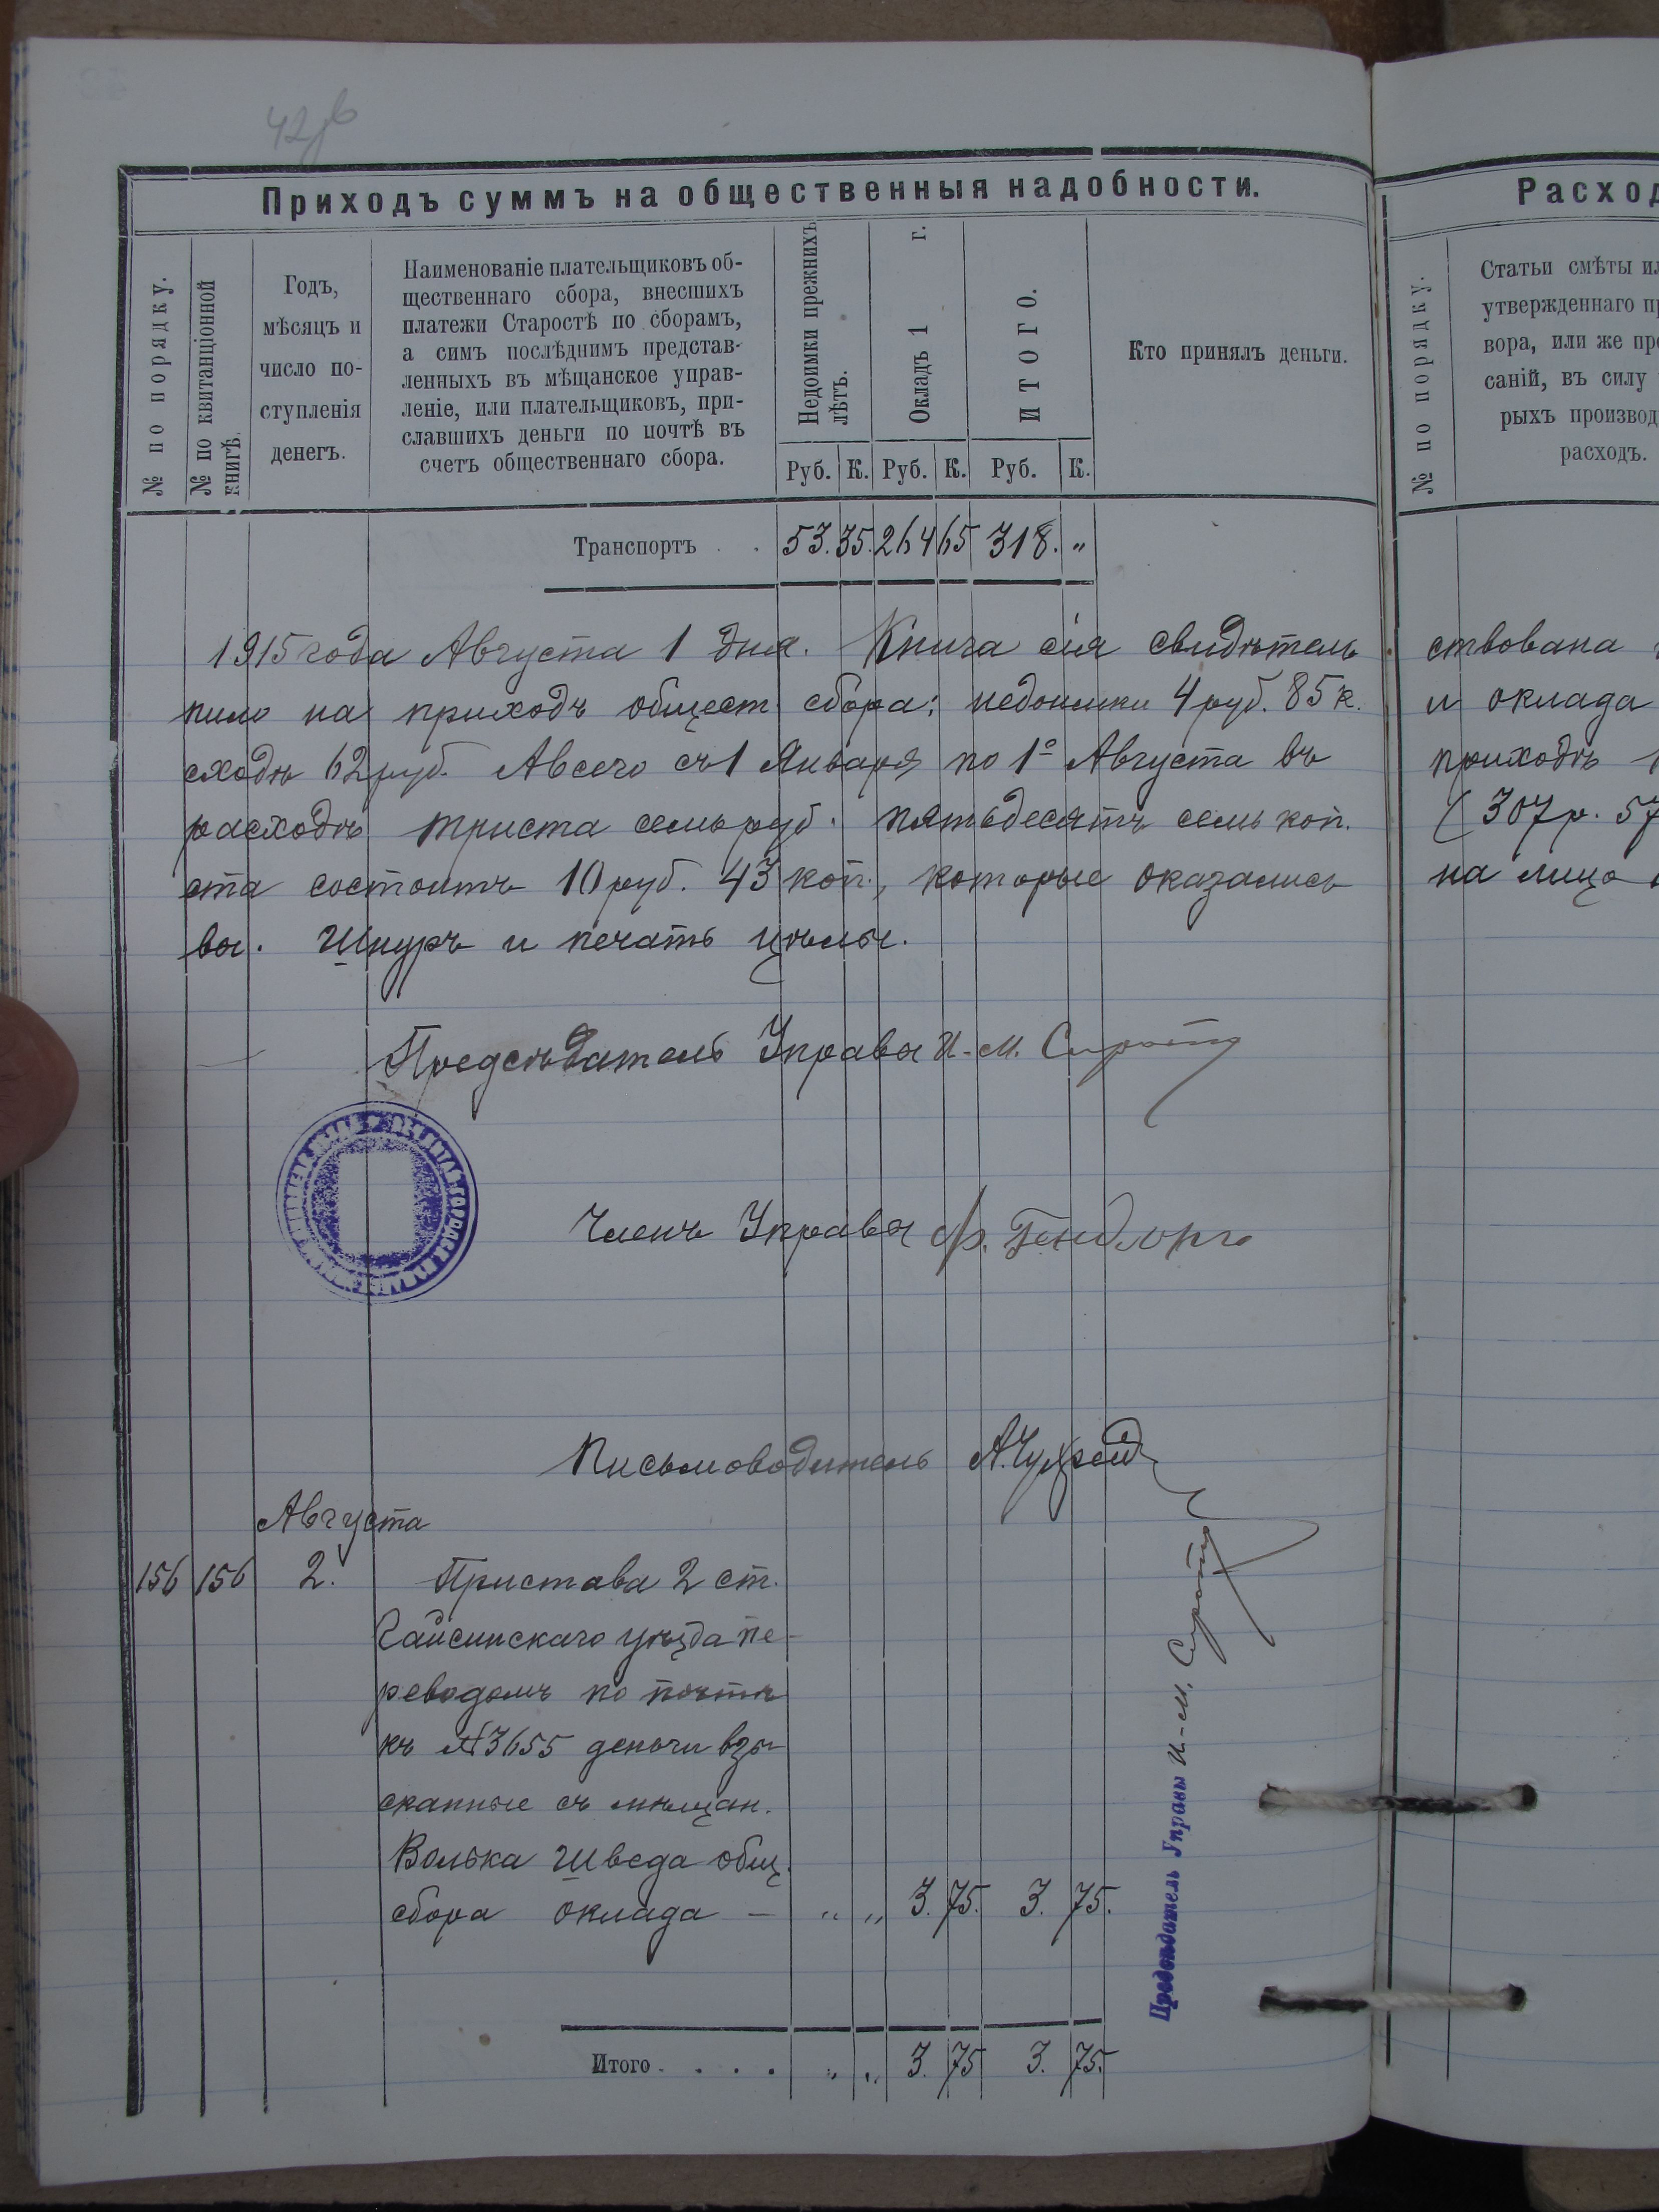 42об
Приходъ суммъ на общественныя надобности.
№ по порядку.
№ по квитанціонной книгѣ.
Годъ,
мѣсяцъ и
число по-
ступленія
денегъ.
Наименованіе плательщиковъ об-
щественнаго сбора, внесшихъ
платежи Старостѣ по сборамъ,
а симъ послѣднимъ представ-
ленныхъ въ мѣщанское управ-
леніе, или плательщиковъ, при-
славшихъ деньги по почтѣ въ
счетъ общественнаго сбора.
Недоимки прежнихъ лѣтъ.
Окладъ 1 г.
ИТОГО.
Кто принялъ деньги.
Руб. К. Руб. К. Руб. К.
Транспортъ . . 53. 35. 264 65 318. „
1915 года Августа 1 дня. Книга сія свидѣтель
пило на приходъ общест. сбора: недоимки 4 руб. 85 к.
сходѣ 62 руб. А всего съ 1 Января по 1º Августа въ
расходѣ триста семь руб. пятьдесятъ семь коп.
ста состоитъ 10 руб. 43 коп., которые оказались
вы. Шнуръ и печать цѣлы.
Предсѣдатель Управы И-М. Сирота
Членъ Управы
Письмоводитель
Августа
156 156 2. Пристава 2 ст.
Гайсинскаго уѣзда пе-
реводомъ по почтѣ
къ №3655 деньги взы-
сканные съ мѣщан.
Волька Шведа общ.
сбора оклада — „ „ 3. 75. 3. 75.
Предсѣдатель Управы И-М. Сирота
Итого . . . . „ „ 3. 75 3. 75.
Расход
№ по порядку.
Статьи смѣты ил
утвержденнаго пр
вора, или же пре
саній, въ силу
рыхъ производ
расходъ.
ствована
и оклада
приходѣ
(307 р. 57
на лицо